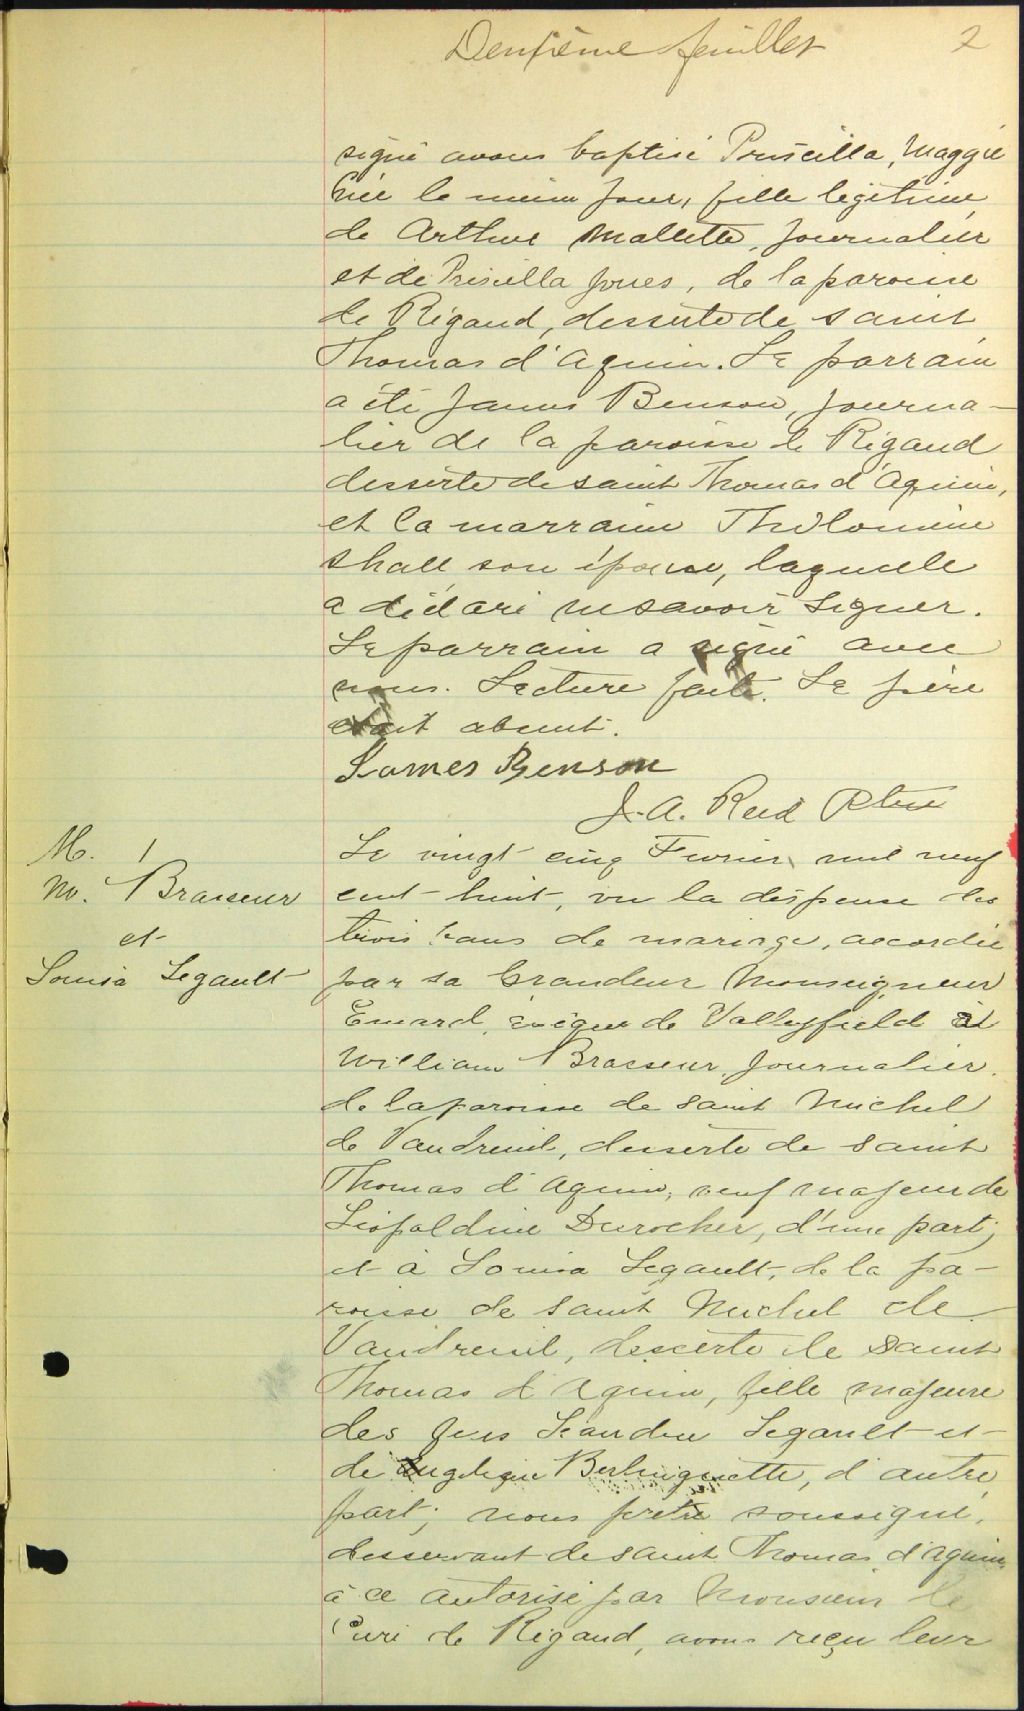 Deuxième feuillet 2
signé avons baptisé Priscilla, Maggie
née le même jour, fille légitime
de Arthur Mallette, journalier
et de Priscilla Jones, de la paroisse
de Rigaud, desserte de saint
Thomas d'Aquin. Le parrain
a été James Benson, journa-
lier de la paroisse de Rigaud
desserte de saint Thomas d'Aquin,
et la marraine Philomène
Shall son épouse, laquelle
a déclaré ne savoir signer.
Le parrain a signé avec
nous. Lecture faite. Le père
était absent.
James Benson
J. A. Reid Ptre
M. 1
W. Brasseur
et
Louisa Legault
Le vingt cinq Février mil neuf
cent huit, vu la dispense des
trois bans de mariage, accordée
par sa Grandeur Monseigneur
Emard, évêque de Valleyfield à
William Brasseur, journalier,
de la paroisse de saint Michel
de Vaudreuil, desserte de saint
Thomas d'Aquin, veuf majeur de
Léopoldine Durocher, d'une part;
et à Louisa Legault, de la pa-
roisse de saint Michel de
Vaudreuil, desserte de saint
Thomas d'Aquin, fille majeure
des feus Léandre Legault et
de Angelique Berlinguette, d'autre
part; nous prêtre soussigné,
desservant de saint Thomas d'Aquin
à ce autorisé par Monsieur le
Curé de Rigaud, avons reçu leur